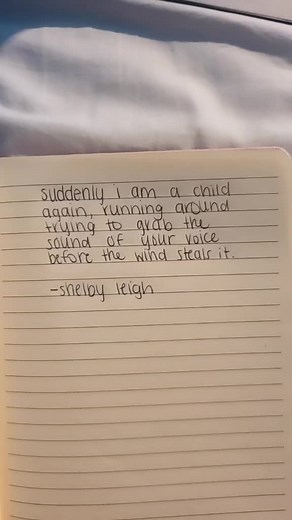 suddenly i am a child
again, running around
trying to grab the
sound of your voice
before the wind steals it.
-shelby leigh